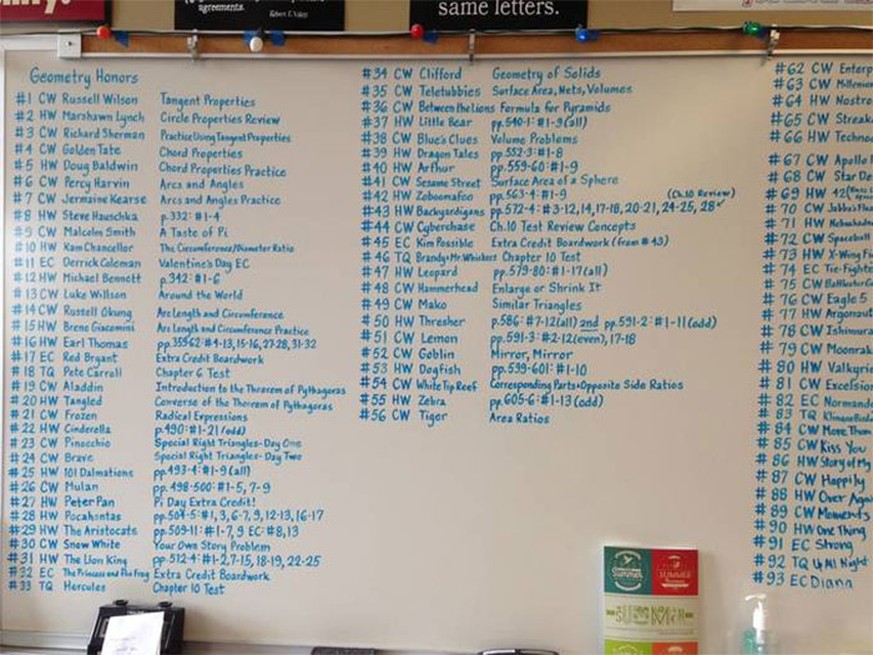 agreements.
Robert E. Valett
same letters.
Geometry Honors
#1 CW Russell Wilson Tangent Properties
#2 HW Marshawn Lynch Circle Properties Review
#3 CW Richard Sherman Practice Using Tangent Properties
#4 CW Golden Tate Chord Properties
#5 HW Doug Baldwin Chord Properties Practice
#6 CW Percy Harvin Arcs and Angles
#7 CW Jermaine Kearse Arcs and Angles Practice
#8 HW Steve Hauschka p.332: #1-4
#9 CW Malcolm Smith A Taste of Pi
#10 HW Kam Chancellor The Circumference/Diameter Ratio
#11 EC Derrick Coleman Valentine's Day EC
#12 HW Michael Bennett p.342: #1-6
#13 CW Luke Willson Around the World
#14 CW Russell Okung Arc Length and Circumference
#15 HW Breno Giacomini Arc Length and Circumference Practice
#16 HW Earl Thomas pp.359-62: #4-13, 15-16, 27-28, 31-32
#17 EC Red Bryant Extra Credit Boardwork
#18 TQ Pete Carroll Chapter 6 Test
#19 CW Aladdin Introduction to the Threorem of Pythagoras
#20 HW Tangled Converse of the Theorem of Pythagoras
#21 CW Frozen Radical Expressions
#22 HW Cinderella p.490: #1-21 (odd)
#23 CW Pinocchio Special Right Triangles- Day One
#24 CW Brave Special Right Triangles- Day Two
#25 HW 101 Dalmations pp.493-4: #1-9 (all)
#26 CW Mulan pp.498-500: #1-5, 7-9
#27 HW Peter Pan Pi Day Extra Credit!
#28 HW Pocahontas pp.504-5: #1, 3, 6-7, 9, 12-13, 16-17
#29 HW The Aristocats pp.509-11: #1-7, 9 EC: #8, 13
#30 CW Snow White Your Own Story Problem
#31 HW The Lion King pp.512-4: #1-2, 7-15, 18-19, 22-25
#32 EC The Princess and the Frog Extra Credit Boardwork
#33 TQ Hercules Chapter 10 Test
#34 CW Clifford Geometry of Solids
#35 CW Teletubbies Surface Area, Nets, Volumes
#36 CW Between the Lions Formula for Pyramids
#37 HW Little Bear pp.540-1: #1-9 (all)
#38 CW Blue's Clues Volume Problems
#39 HW Dragon Tales pp.552-3: #1-8
#40 HW Arthur pp.559-60: #1-9
#41 CW Sesame Street Surface Area of a Sphere
#42 HW Zoboomafoo pp.563-4: #1-9 (Ch.10 Review)
#43 HW Backyardigans pp.572-4: #3-12, 14, 17-18, 20-21, 24-25, 28
#44 CW Cyberchase Ch.10 Test Review Concepts
#45 EC Kim Possible Extra Credit Boardwork (from #43)
#46 TQ Brandy+Mr. Whiskers Chapter 10 Test
#47 HW Leopard pp.579-80: #1-17 (all)
#48 CW Hammerhead Enlarge or Shrink It
#49 CW Mako Similar Triangles
#50 HW Thresher p.586: #7-12 (all) and pp.591-2: #1-11 (odd)
#51 CW Lemon pp.591-3: #2-12 (even), 17-18
#52 CW Goblin Mirror, Mirror
#53 HW Dogfish pp.599-601: #1-10
#54 CW White Tip Reef Corresponding Parts+Opposite Side Ratios
#55 HW Zebra pp.605-6: #1-13 (odd)
#56 CW Tiger Area Ratios
#62 CW Enterp
#63 CW Millenniu
#64 HW Nostro
#65 CW Streak
#66 HW Techno
#67 CW Apollo
#68 CW Star De
#69 HW 42
#70 CW Jabba's
#71 HW Nebuchadn
#72 CW Spaceball
#73 HW X-Wing Fi
#74 EC Tie-Fighte
#75 CW Battlestar
#76 CW Eagle 5
#77 HW Argonaut
#78 CW Ishimura
#79 CW Moonrak
#80 HW Valkyrie
#81 CW Excelsio
#82 EC Normand
#83 TQ Klingon
#84 CW More Than
#85 CW Kiss You
#86 HW Story of My
#87 CW Happily
#88 HW Over Again
#89 CW Moments
#90 HW One Thing
#91 EC Strong
#92 TQ Up All Night
#93 EC Diana
SUMMER